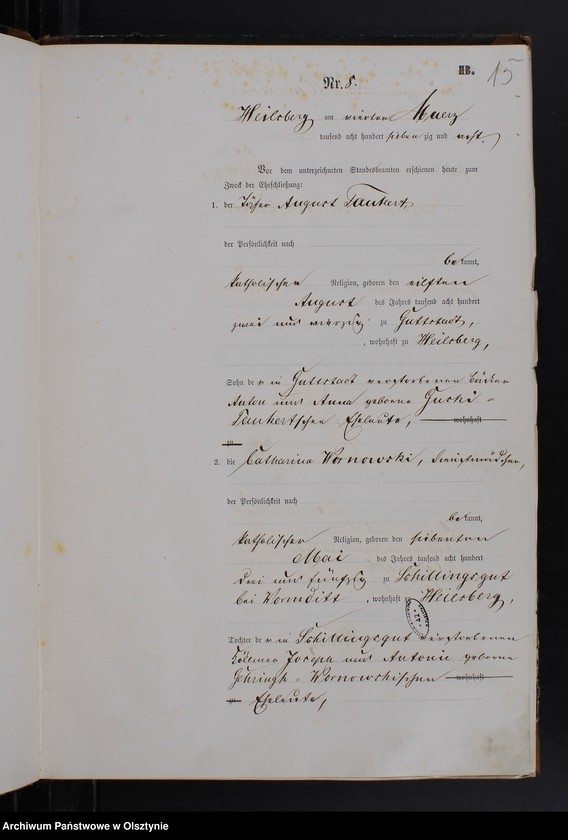 B. 15
Nr. 8.
Heilsberg am vierten Maerz
tausend acht hundert sieben zig und acht.
Vor dem unterzeichneten Standesbeamten erschienen heute zum
Zweck der Eheschließung:
1. der Töpfer August Tankert,
der Persönlichkeit nach
bekannt,
katholischer Religion, geboren den eilften
August des Jahres tausend acht hundert
zwei und vierzig zu Guttstadt,
, wohnhaft zu Heilsberg,
Sohn der in Guttstadt verstorbenen Bäcker
Anton und Anna geborne
Tankertschen Eheleute, wohnhaft
zu
2. die Catharina Wornowski, Dienstmädchen,
der Persönlichkeit nach
bekannt,
katholischer Religion, geboren den siebenten
Mai des Jahres tausend acht hundert
drei und fünfzig zu Schillingsgut
bei Wormditt, wohnhaft zu Heilsberg,
Tochter der in Schillingsgut verstorbenen
Köllmer Joseph und Antonie geborne
Wornowskischen wohnhaft
zu Eheleute,
Archiwum Państwowe w Olsztynie